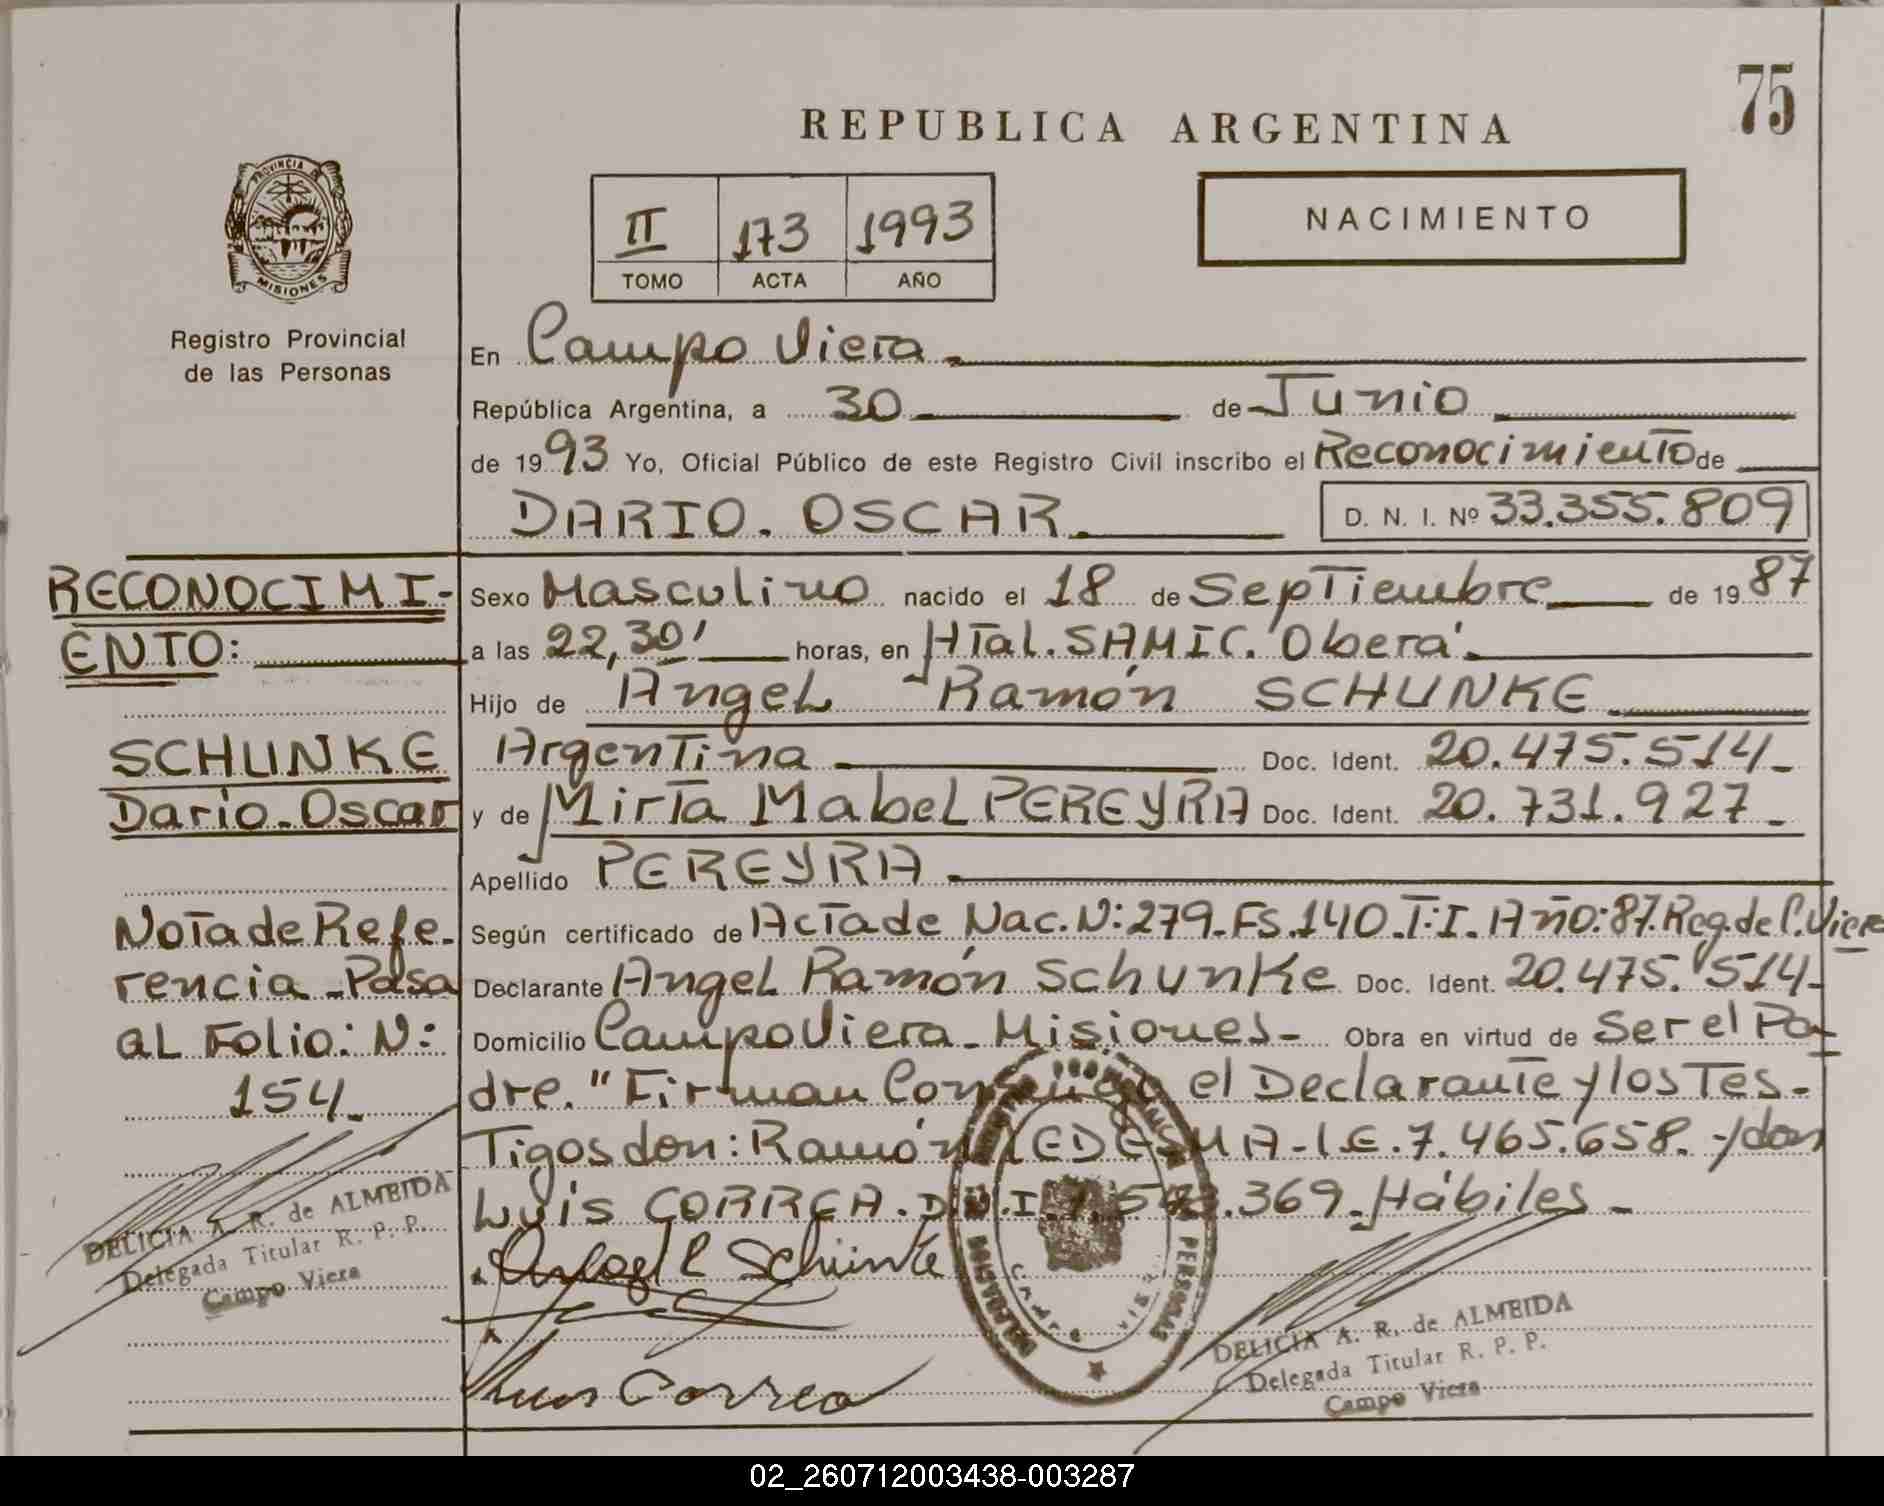 75
REPUBLICA ARGENTINA
NACIMIENTO
II 173 1993
TOMO ACTA AÑO
PROVINCIA DE
MISIONES
Registro Provincial
de las Personas
En Campo Viera
República Argentina, a 30 de Junio
de 1993 Yo, Oficial Público de este Registro Civil inscribo el Reconocimiento de
DARIO. OSCAR D. N. I. Nº 33.355.809
Sexo Masculino nacido el 18 de Septiembre de 1987
a las 22,30' horas, en HTal. SAMIC. Oberá.
Hijo de Angel Ramón SCHUNKE
Argentina Doc. Ident. 20.475.514-
y de Mirta Mabel PEREYRA Doc. Ident. 20.731.927-
Apellido PEREYRA
Según certificado de Acta de Nac. N: 279-Fs.140.T:I.Año:87.Reg.de C.Viera
Declarante Angel Ramón Schunke Doc. Ident. 20.475.514-
Domicilio Campo Viera - Misiones- Obra en virtud de Ser el Pa-
dre." Firman Conmigo el Declarante y los Tes-
Tigos don: Ramón LEDESMA-L.E.7.465.658.-y don
Luis CORREA. D.N.I. 369. Hábiles-
RECONOCIMI-
ENTO:
SCHUNKE
Dario-Oscar
Nota de Refe-
rencia-Pasa
al Folio: N:
154-
DELICIA A. R. de ALMEIDA
Delegada Titular R. P. P.
Campo Viera
Angel R Schunke
Luis Correa
DELICIA A. R. de ALMEIDA
Delegada Titular R. P. P.
Campo Viera
02_260712003438-003287